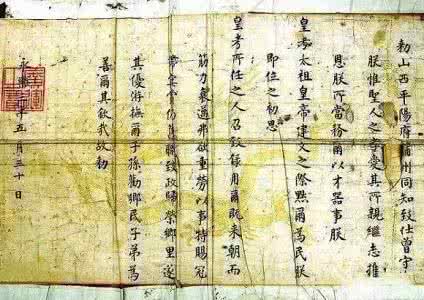 勑山西平陽府蒲州同知致仕曾宇
朕惟聖人之孝受其所親繼志推
恩朕所當務爾以才器事朕
皇考太祖皇帝建文之際黜爾為民朕
即位之初思
皇考所任之人召致錄用爾既來朝而
筋力衰邁弗欲重勞以事特賜冠
帶仍職致政歸榮鄉里遂
其優游撫爾子孫勸鄉民子弟為
善爾其欽哉故勑
永樂年五月三十日